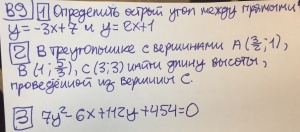 В9 1 Определить острый угол между прямыми
y=-3x+7 и y=2x+1
2 В треугольнике с вершинами A(3/2;1),
B(1;5/3), C(3;3) найти длину высоты,
проведённой из вершины C.
3 7y²-6x+112y+454=0